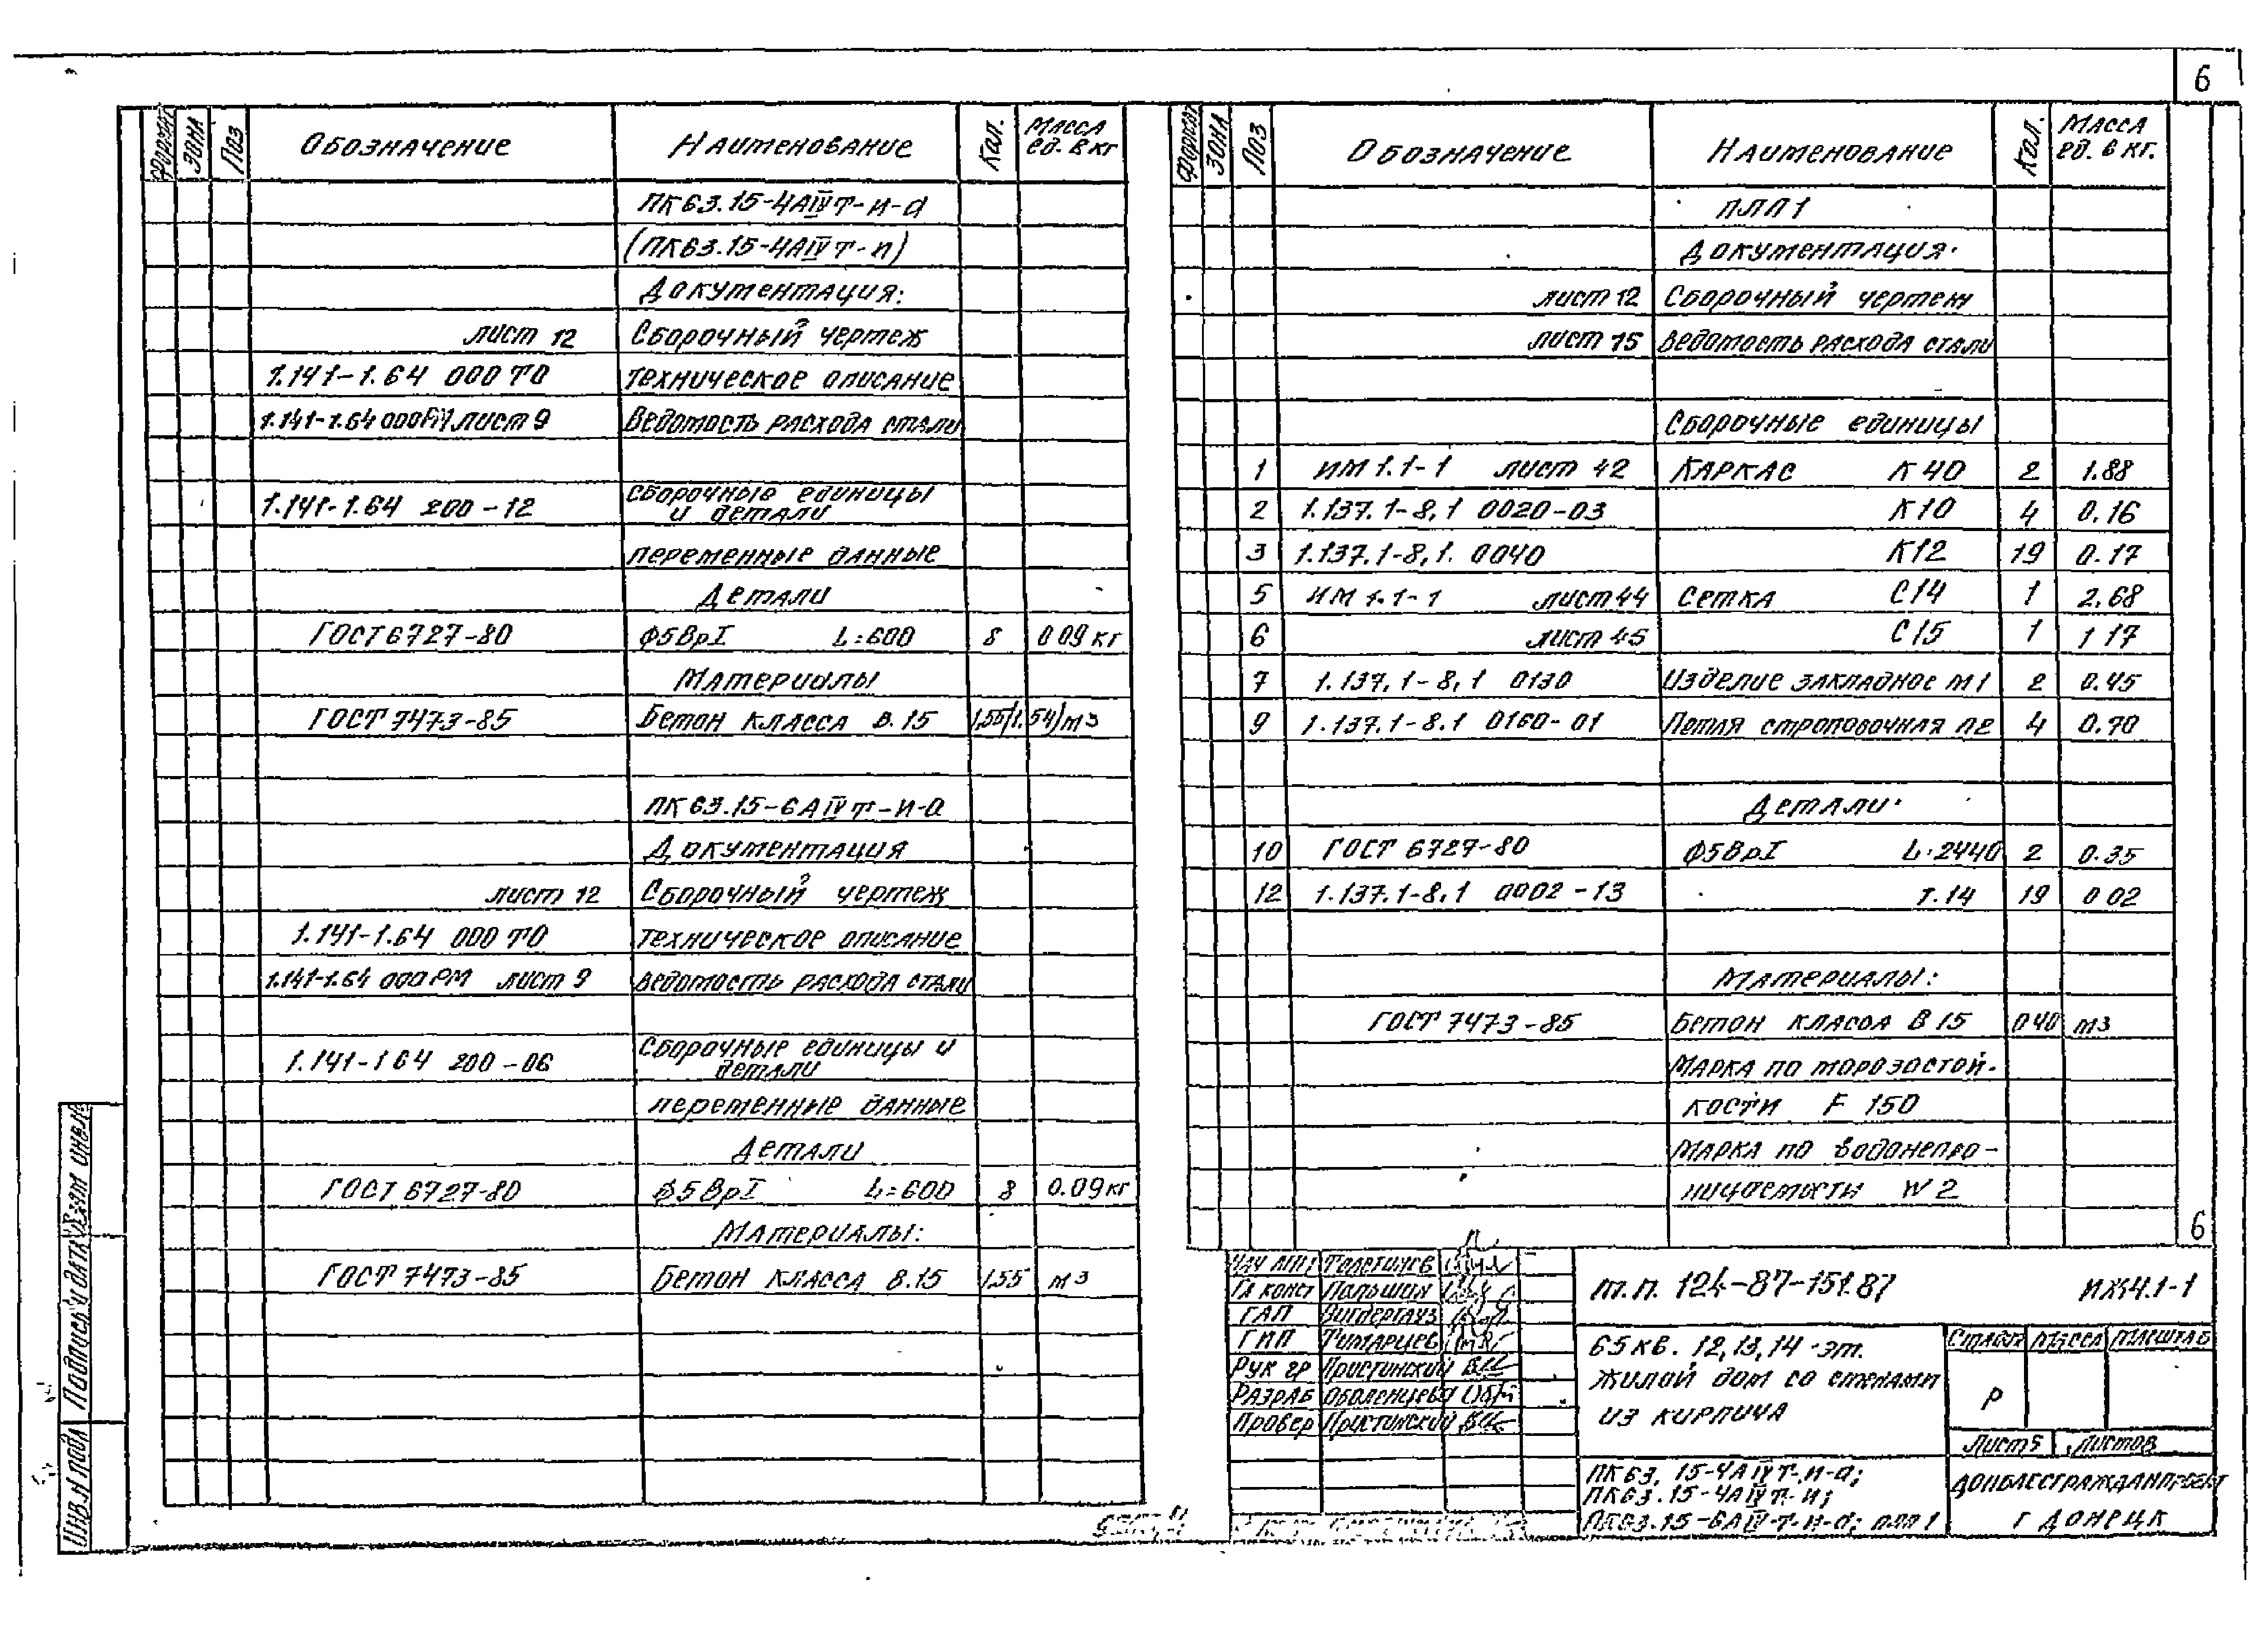 6
Формат Зона Поз Обозначение Наименование Кол. Масса ед. в кг
ПК63.15-4АIVт-и-а
(ПК63.15-4АIVт-и)
Документация:
лист 12 Сборочный чертеж
1.141-1.64 000 ТО Техническое описание
1.141-1.64 000РМ лист 9 Ведомость расхода стали
1.141-1.64 200-12 Сборочные единицы
и детали
переменные данные
Детали
ГОСТ 6727-80 ф5ВрI L=600 8 0 09 кг
Материалы
ГОСТ 7473-85 Бетон класса В.15 1,55(1.54) м3
ПК63.15-6АIVт-и-а
Документация
лист 12 Сборочный чертеж
1.141-1.64 000 ТО Техническое описание
1.141-1.64 000 РМ лист 9 Ведомость расхода стали
1.141-1 64 200-06 Сборочные единицы и
детали
переменные данные
Детали
ГОСТ 6727-80 ф5ВрI L=600 8 0.09 кг
Материалы:
ГОСТ 7473-85 Бетон класса В.15 1,55 м3
Формат Зона Поз Обозначение Наименование Кол. Масса ед. в кг.
ПЛП1
Документация.
лист 12 Сборочный чертеж
лист 15 Ведомость расхода стали
Сборочные единицы
1 ИМ 1.1-1 лист 42 Каркас К40 2 1.88
2 1.137.1-8,1 0020-03 К10 4 0.16
3 1.137.1-8,1. 0040 К12 19 0.17
5 ИМ 1.1-1 лист 44 Сетка С14 1 2.68
6 лист 45 С15 1 1 17
7 1.137.1-8,1 0130 Изделие закладное М1 2 0.45
9 1.137.1-8.1 0160-01 Петля строповочная П2 4 0.70
Детали.
10 ГОСТ 6727-80 ф5ВрI L.2440 2 0.35
12 1.137.1-8,1 0002-13 т.14 19 0 02
Материалы:
ГОСТ 7473-85 Бетон класса В 15 0 40 м3
Марка по морозостой-
кости F 150
Марка по водонепро-
ницаемости W 2
6
Нач АПМ Телегинев
Гл конст Паньшин
ГАП
ГИП Тимарцев
Рук гр Пристинский
Разраб Оболенцева
Провер Пристинский
т.п. 124-87-151.87 ИЖ4.1-1
65 кв. 12,13,14-эт.
жилой дом со стенами
из кирпича
Стадия Масса Масштаб
Р
Лист 5 Листов
ПК63.15-4АIVт-и-а;
ПК63.15-4АIVт-и;
ПК63.15-6АIVт-и-а; плп 1
Донблесгражданпроект
г Донецк
Взам инв.
Подпись и дата
Инв.N подл